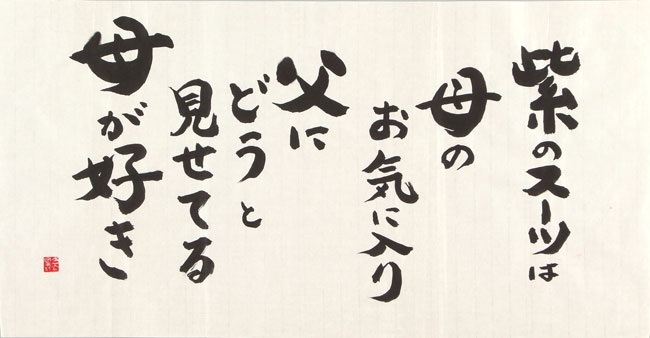 紫のスーツは
母の
お気に入り
父に
どうと
見せてる
母が好き